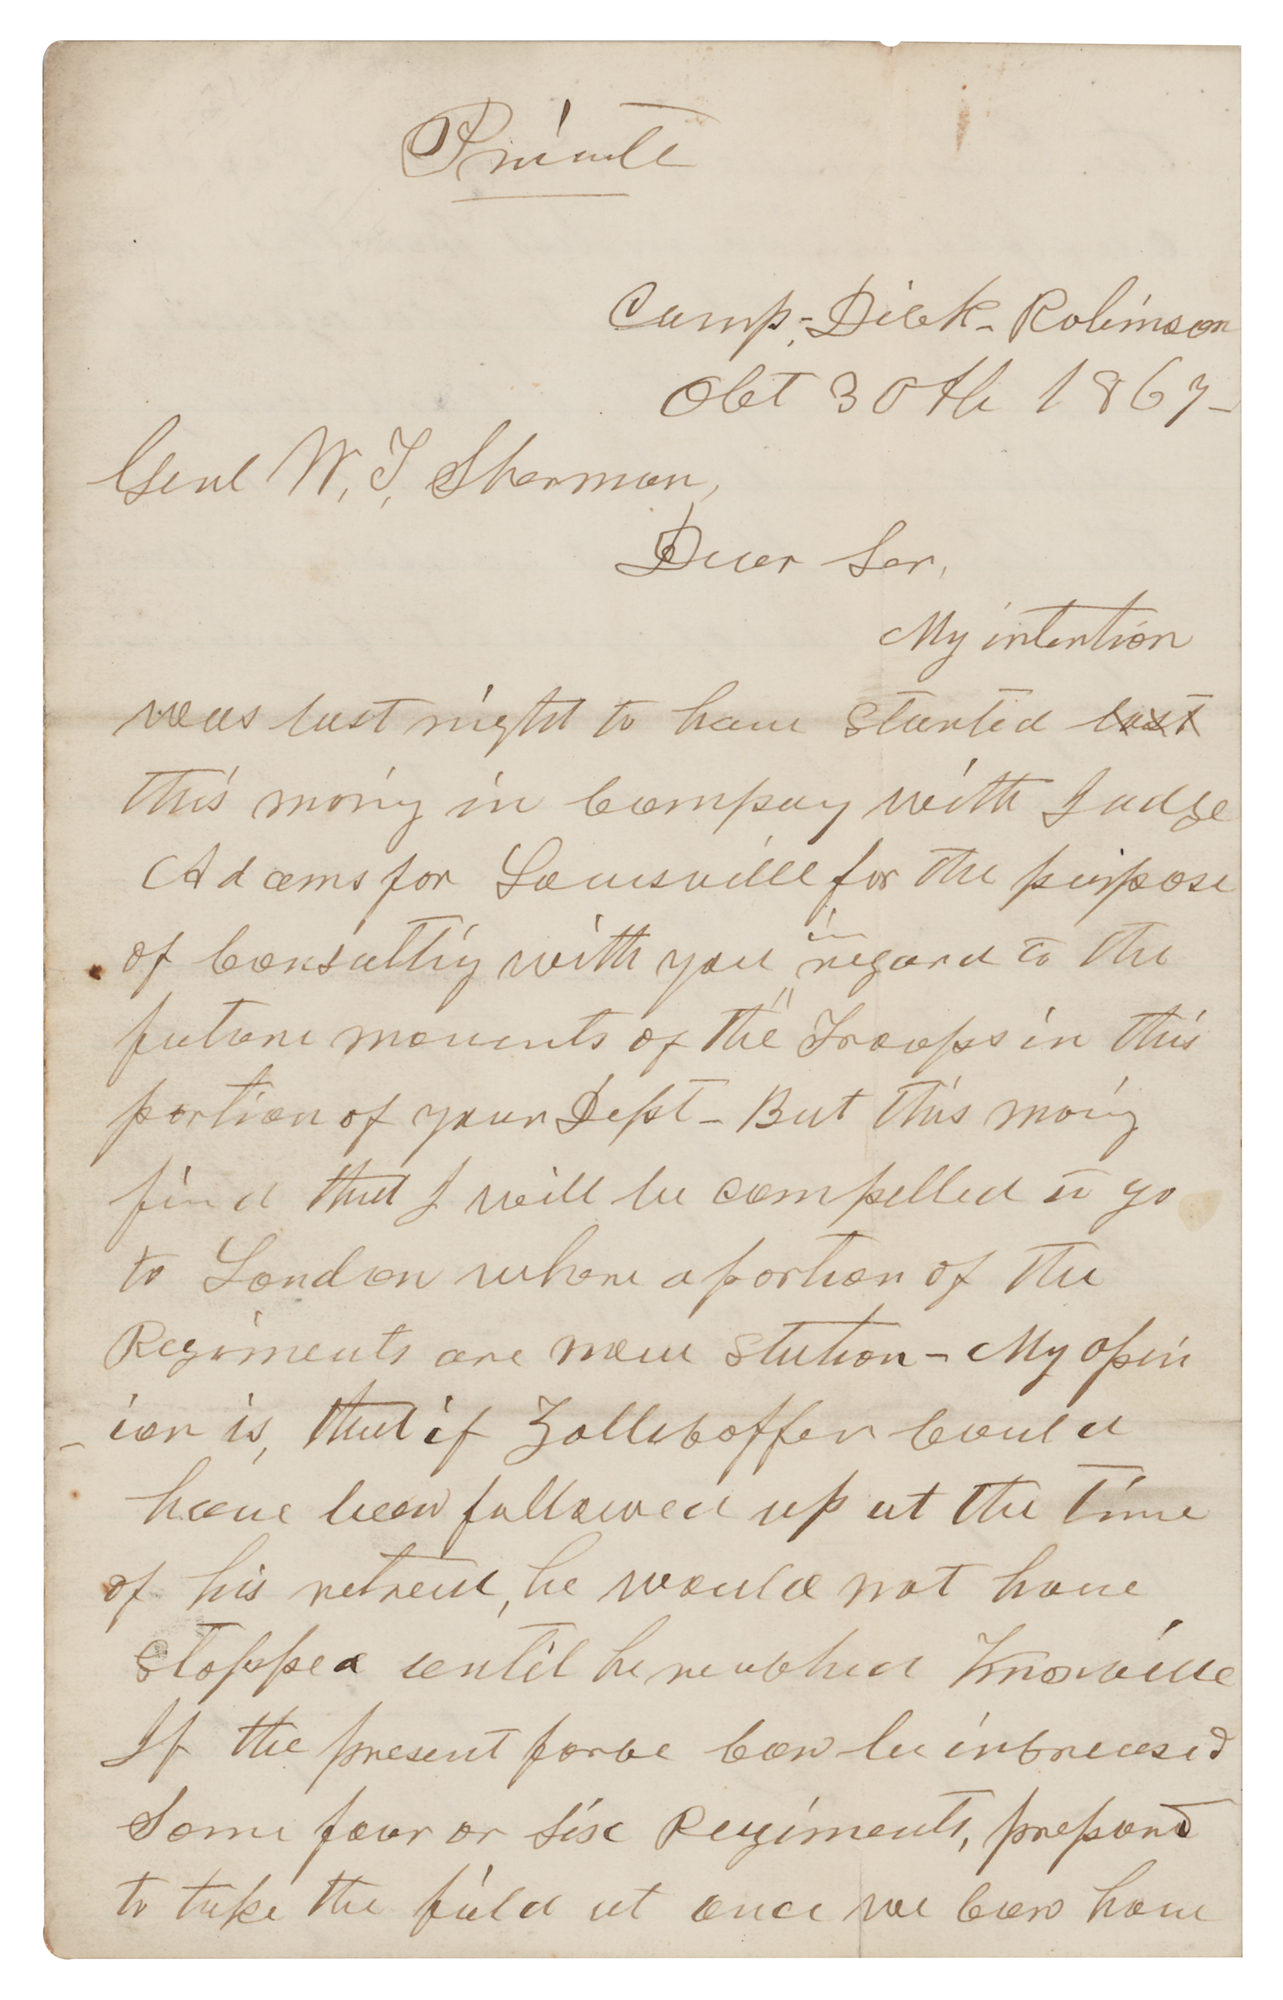 Private
Camp, Dick-Robinson
Oct 30th 1861-
Genl W. T. Sherman,
Dear Ser,
My intention
was last night to have started last
this moring in Compay with Judge
Adams for Louisville for the purpose
of Consultig with you in regard to the
future movents of the Troops in this
portion of your Dept - But this moring
find that I will be compelled to go
to London where a portion of the
Regiments are now Station - My opin
ion is, that if Zollicoffer Could
have been followed up at the time
of his retreat, he would not have
stopped until he reached Knoxville
If the present force Can be increased
Some four or six Regiments, prepard
to take the field at once we Can have